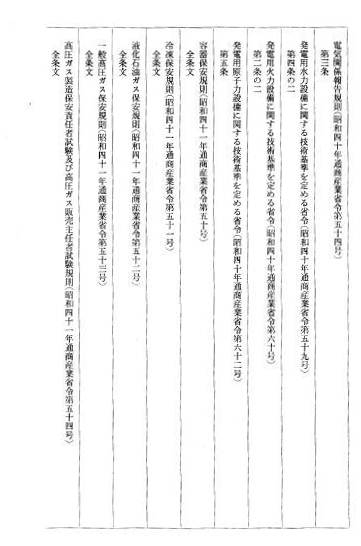 電気関係報告規則（昭和四十年通商産業省令第五十四号）
第三条
発電用水力設備に関する技術基準を定める省令（昭和四十年通商産業省令第五十九号）
第四条の二
発電用火力設備に関する技術基準を定める省令（昭和四十年通商産業省令第六十号）
第二条の二
発電用原子力設備に関する技術基準を定める省令（昭和四十年通商産業省令第六十二号）
第五条
容器保安規則（昭和四十一年通商産業省令第五十号）
全条文
冷凍保安規則（昭和四十一年通商産業省令第五十一号）
全条文
液化石油ガス保安規則（昭和四十一年通商産業省令第五十二号）
全条文
一般高圧ガス保安規則（昭和四十一年通商産業省令第五十三号）
全条文
高圧ガス製造保安責任者試験及び高圧ガス販売主任者試験規則（昭和四十一年通商産業省令第五十四号）
全条文